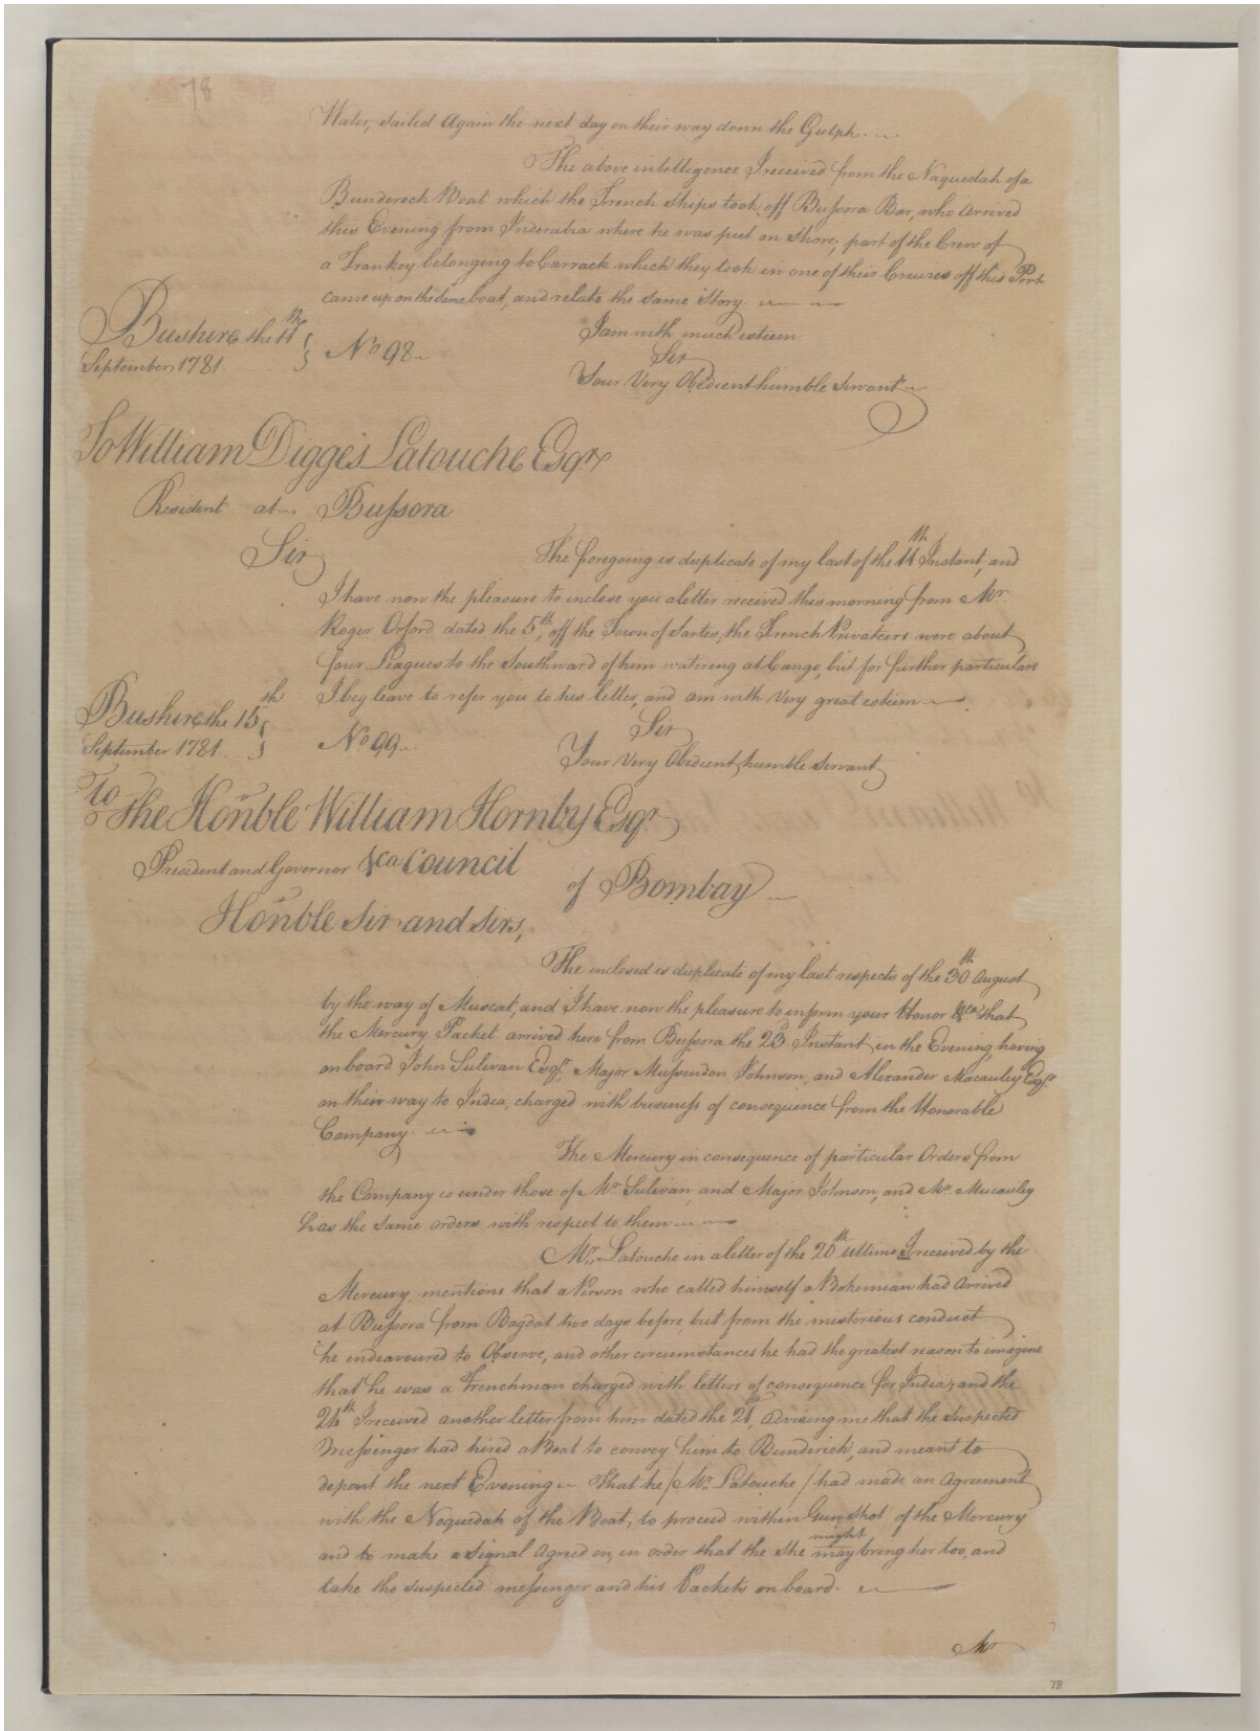 78
Water, sailed Again the next day on their way down the Gulph.
The above intelligence I received from the Naquedah of a
Bunderech Boat which the French Ships took off Bussora Bar, who Arrived
this Evening from Inderabia where he was put on shore; part of the Crew of
a Trankey belonging to Carrack which they took in one of their Cruizes off this Port
came up on the same boat, and relate the same Story.
I am with much esteem
Bushire the 11th
September 1781.
No 98
Sir
Your Very Obedient humble Servant
To William Digges Latouche Esqr
Resident at Bussora
Sir
The foregoing is duplicate of my last of the 11th Instant, and
I have now the pleasure to inclose you a letter received this morning from Mr
Roger Orford dated the 5th, off the Town of Sartes, the French Privateers were about
four Leagues to the Southward of him watering at Congo, but for further particulars
I beg leave to refer you to his letter, and am with Very great esteem
Bushire the 15th
September 1781.
No 99
Sir
Your Very Obedient humble Servant
To
The Honble William Hornby Esqr
President and Governor &ca Council
of Bombay
Honble Sir and Sirs,
The inclosed is duplicate of my last respects of the 30th August
by the way of Muscat, and I have now the pleasure to inform your Honor &ca that
the Mercury Packet arrived here from Bussora the 23d Instant in the Evening, having
on board John Sulivan Esqr, Major Mussendon Johnson, and Alexander Macauley Esqr
on their way to India, charged with business of consequence from the Honorable
Company.
The Mercury in consequence of particular Orders from
the Company is under those of Mr Sulivan, and Major Johnson, and Mr Macauley
has the same orders with respect to them
Mr Latouche in a letter of the 20th ultimo I received by the
Mercury, mentions that a Person who called himself a Bohemian had Arrived
at Bussora from Bagdat two days before, but from the misterious conduct
he endeavoured to Observe, and other circumstances he had the greatest reason to imagine
that he was a Frenchman charged with letters of consequence for India; and the
I received another letter from him dated the 21, advising me that the suspected
Messinger had hired a Boat to convey him to Bunderick, and meant to
depart the next Evening That he /Mr Latouche/ had made an Agreement
with the Noquedah of the Boat, to proceed within Gun Shot of the Mercury
and to make a signal Agreed on, in order that the She might may bring her too, and
take the suspected messinger and his Packets on board.
Mr
78